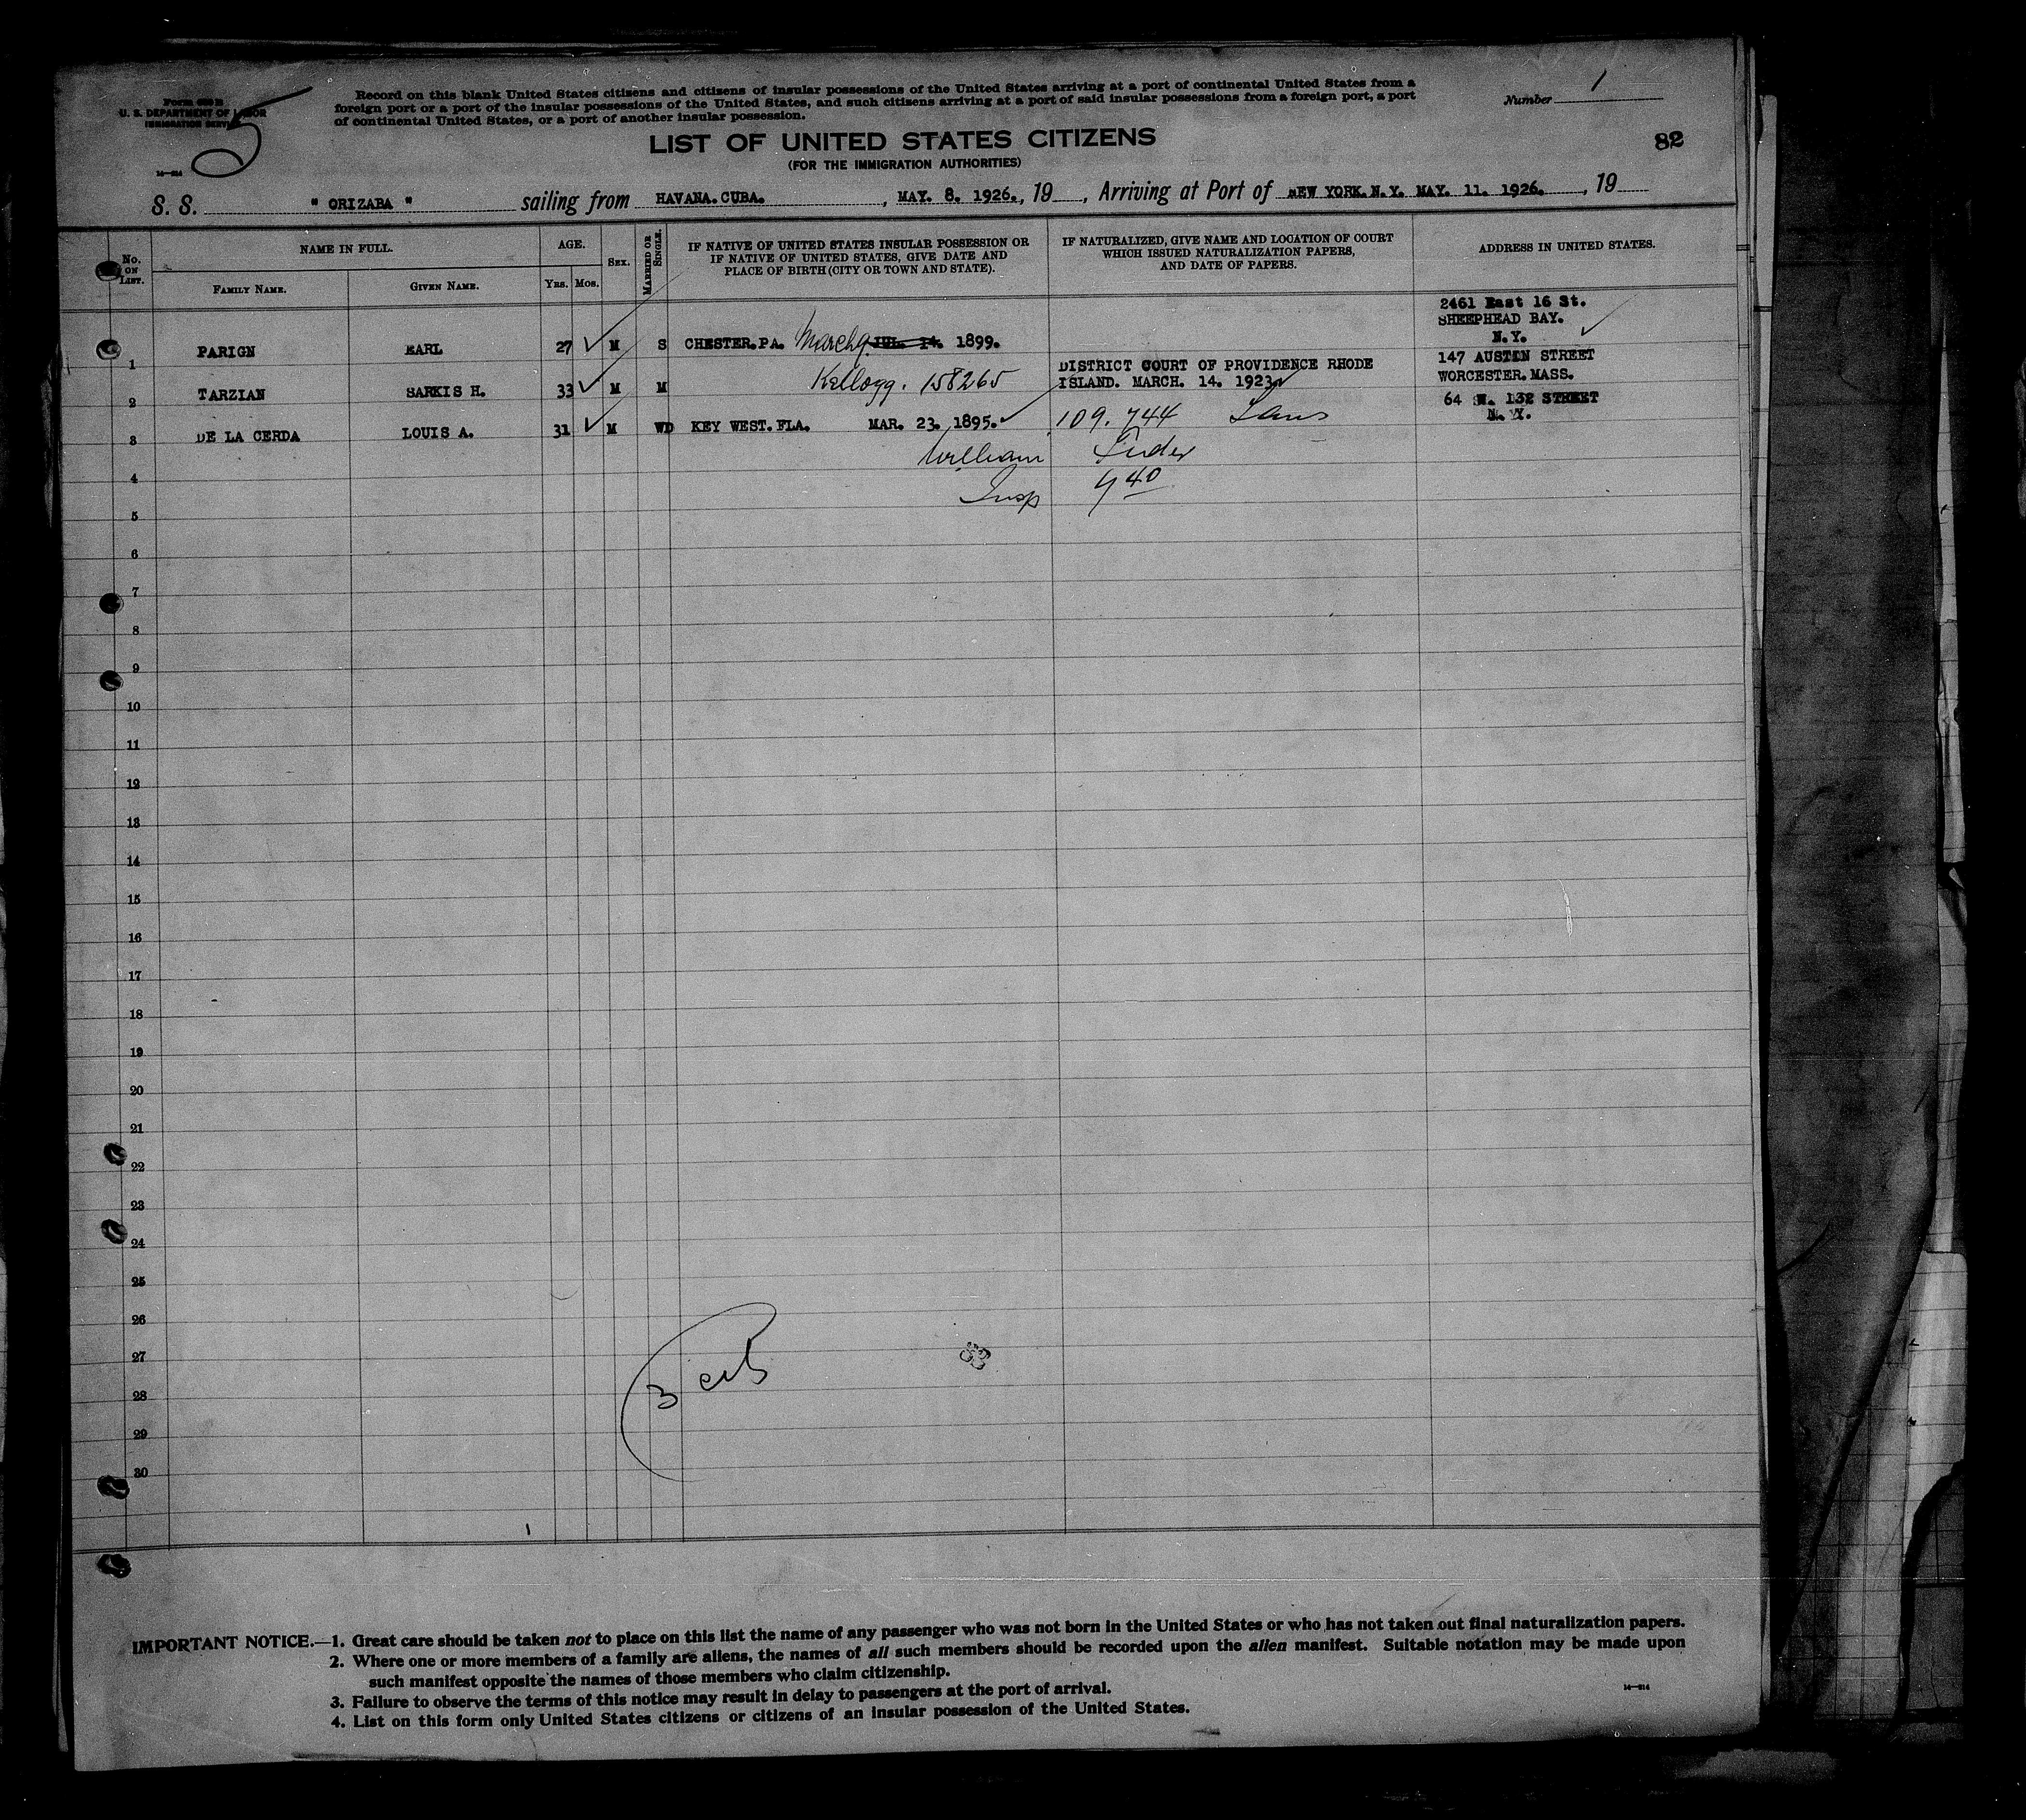 Form 630 B
U. S. DEPARTMENT OF LABOR
IMMIGRATION SERVICE
14—214
Record on this blank United States citizens and citizens of insular possessions of the United States arriving at a port of continental United States from a
foreign port or a port of the insular possessions of the United States, and such citizens arriving at a port of said insular possessions from a foreign port, a port
of continental United States, or a port of another insular possession.
Number 1
82
LIST OF UNITED STATES CITIZENS
(FOR THE IMMIGRATION AUTHORITIES)
S. S. " ORIZABA " sailing from HAVANA.CUBA. , MAY. 8. 1926., 19 , Arriving at Port of NEW YORK.N.Y. MAY. 11. 1926. , 19
No. ON LIST.
NAME IN FULL.
FAMILY NAME.
GIVEN NAME.
AGE.
YRS. MOS.
SEX.
MARRIED OR SINGLE.
IF NATIVE OF UNITED STATES INSULAR POSSESSION OR
IF NATIVE OF UNITED STATES, GIVE DATE AND
PLACE OF BIRTH (CITY OR TOWN AND STATE).
IF NATURALIZED, GIVE NAME AND LOCATION OF COURT
WHICH ISSUED NATURALIZATION PAPERS,
AND DATE OF PAPERS.
ADDRESS IN UNITED STATES.
1 PARIGN EARL 27 M S CHESTER.PA. March 9. JUL. 14. 1899.
2461 East 16 St.
SHEEPHEAD BAY.
N.Y.
2 TARZIAN SARKIS H. 33 M M Kellogg. 158265
DISTRICT COURT OF PROVIDENCE RHODE
ISLAND. MARCH. 14. 1923.
147 AUSTIN STREET
WORCESTER.MASS.
3 DE LA CERDA LOUIS A. 31 M WD KEY WEST.FLA. MAR. 23. 1895. 109.744
64 W. 132 STREET
N.Y.
William
4
Insp 940
5
6
7
8
9
10
11
12
13
14
15
16
17
18
19
20
21
22
23
24
25
26
27
28
29
30
3
IMPORTANT NOTICE.—1. Great care should be taken not to place on this list the name of any passenger who was not born in the United States or who has not taken out final naturalization papers.
2. Where one or more members of a family are aliens, the names of all such members should be recorded upon the alien manifest. Suitable notation may be made upon
such manifest opposite the names of those members who claim citizenship.
3. Failure to observe the terms of this notice may result in delay to passengers at the port of arrival.
4. List on this form only United States citizens or citizens of an insular possession of the United States.
14—214